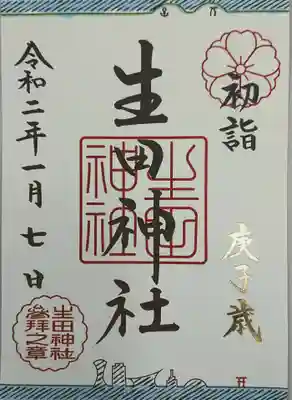 初詣
庚子歳
生田神社
生田神社
令和二年一月七日
生田神社
参拝之章